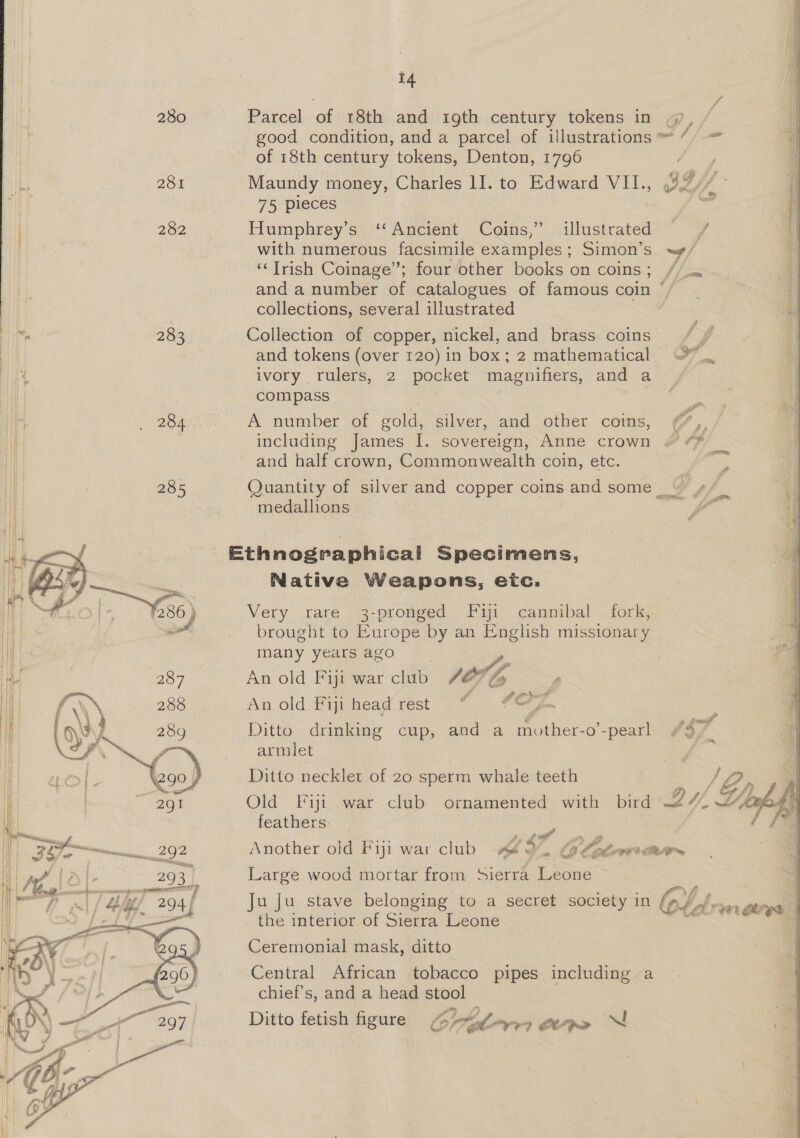 14
280 Parcel of 18th and 19th century tokens in
good condition, and a parcel of illustrations
of 18th century tokens, Denton, 1796
281 Maundy money, Charles II. to Edward VII.,
75 pieces
282 Humphrey's “Ancient Coins,” illustrated
with numerous facsimile examples; Simon's
“Irish Coinage”; four other books on coins;
and a number of catalogues of famous coin
collections, several illustrated
283 Collection of copper, nickel, and brass coins
and tokens (over 120) in box; 2 mathematical
ivory rulers, 2 pocket magnifiers, and a
compass
284 A number of gold, silver, and other coins,
including James I. sovereign, Anne crown
and half crown, Commonwealth coin, etc.
285 Quantity of silver and copper coins and some
medallions
Ethnographical Specimens,
Native Weapons, etc.
286 Very rare 3-pronged Fiji cannibal fork,
brought to Europe by an English missionary
many years ago
287 An old Fiji war club
288 An old Fiji head rest
289 Ditto drinking cup, and a mother-o'-pearl
armlet
290 Ditto necklet of 20 sperm whale teeth
291 Old Fiji war club ornamented with bird
feathers
292 Another old Fiji war club
293 Large wood mortar from Sierra Leone
294 Ju Ju stave belonging to a secret society in
the interior of Sierra Leone
295 Ceremonial mask, ditto
296 Central African tobacco pipes including a
chief's, and a head stool
297 Ditto fetish figure